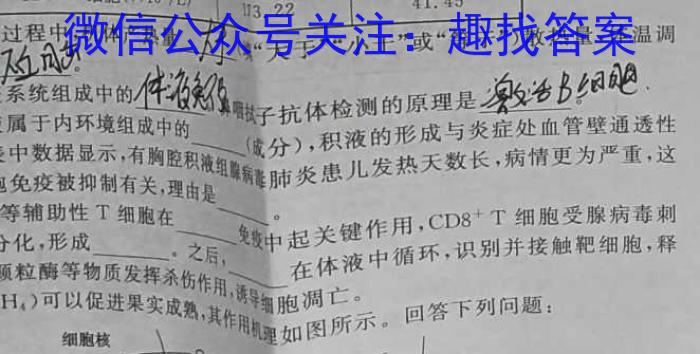 113.22 41.45
微信公众号关注：趣找答案
系统组成中的体液免疫鼻咽拭子抗体检测的原理是激活B细胞.
属于内环境组成中的____(成分),积液的形成与炎症处血管壁通透性
中数据显示,有胸腔积液组腺病毒肺炎患儿发热天数长,病情更为严重,这
免疫被抑制有关,理由是____。
等辅助性T细胞在____免疫中起关键作用,CD8⁺T细胞受腺病毒刺
分化,形成____。之后,____在体液中循环,识别并接触靶细胞,释
颗粒酶等物质发挥杀伤作用,诱导细胞凋亡。
H₄)可以促进果实成熟,其作用机理如图所示。回答下列问题:
细胞核